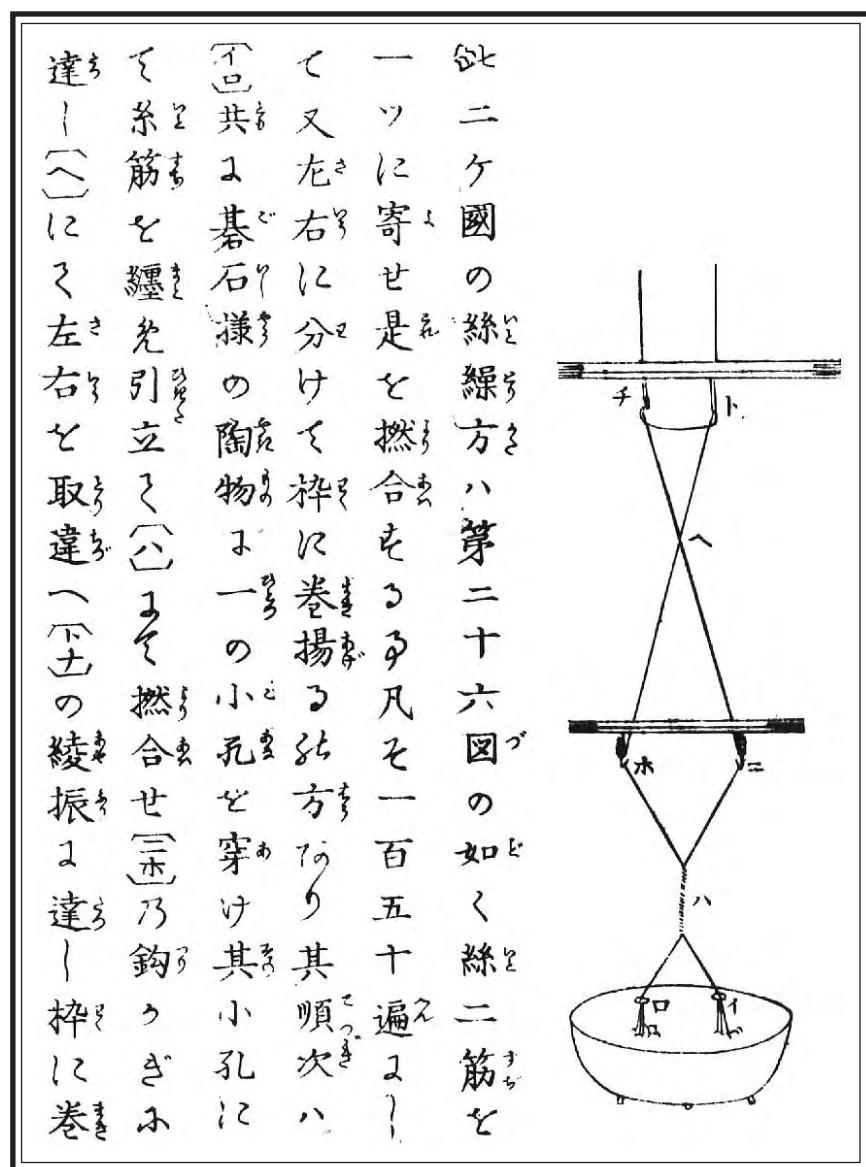 チ
ト
ヘ
ホ
ニ
ハ
ロ
イ
此二ケ國の絲繰方ハ第二十六図の如く絲二筋を
一ツに寄せ是を撚合する事凡そ一百五十遍にし
て又左右に分けて枠に巻揚る仕方なり其順次ハ
〔イロ〕共に碁石様の陶物に一の小孔を穿け其小孔に
て糸筋を纏め引立て〔ハ〕にて撚合せ〔ニホ〕乃鈎かぎに
達し〔ヘ〕にて左右を取違へ〔トチ〕の綾振に達し枠に巻